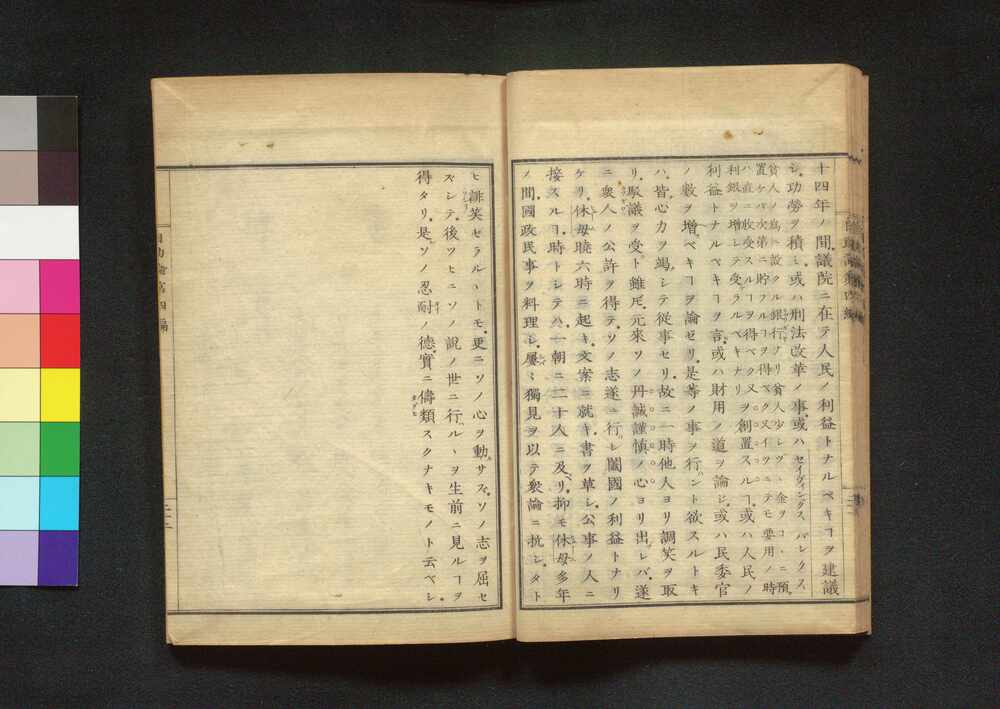 十四年ノ間議院ニ在テ人民ノ利益トナルベキヿヲ建議
シ功勞ヲ積ミ或ハ刑法改革ノ事或ハセイヴィングスバンクス
貧人ノ爲ニ設クル銀行ナリ貧人少シヅヽ金ヲコヽニ預
置ケバ次第ニ貯フルヿヲ得ベク又イツニテモ要用ノ時
ハ直ニ收受スルヿヲ得ベク又
利銀ヲ増シテ受ラルベキナリ
ヲ創置スルヿ或ハ人民ノ
利益トナルベキヿヲ言或ハ財用ノ道ヲ論ジ或ハ民委官
ノ數ヲ増ベキヿヲ論ゼリ是等ノ事ヲ行ハント欲スルトキ
ハ皆心力ヲ竭シテ從事セリ故ニ一時他人ヨリ調笑ヲ取
リ駁議ヲ受ト雖𪜈元來ソノ丹誠謹愼ノ心ヨリ出レバ遂
ニ衆人ノ公許ヲ得テソノ志遂ニ行レ闔國ノ利益トナリ
ケリ休母曉六時ニ起キ文案ニ就キ書ヲ草シ公事ノ人ニ
接スルヿ時トシテハ一朝ニ二十人ニ及ベリ抑モ休母多年
ノ間國政民事ヲ料理シ屢〻獨見ヲ以テ衆論ニ抗シタト
ヒ誹笑セラルヽトモ更ニソノ心ヲ動サズソノ志ヲ屈セ
ズシテ後ツヒニソノ說ノ世ニ行ハルヽヲ生前ニ見ルヿヲ
得タリ是ソノ忍耐ノ德實ニ儔類スクナキモノト云ベシ
自助論第四編